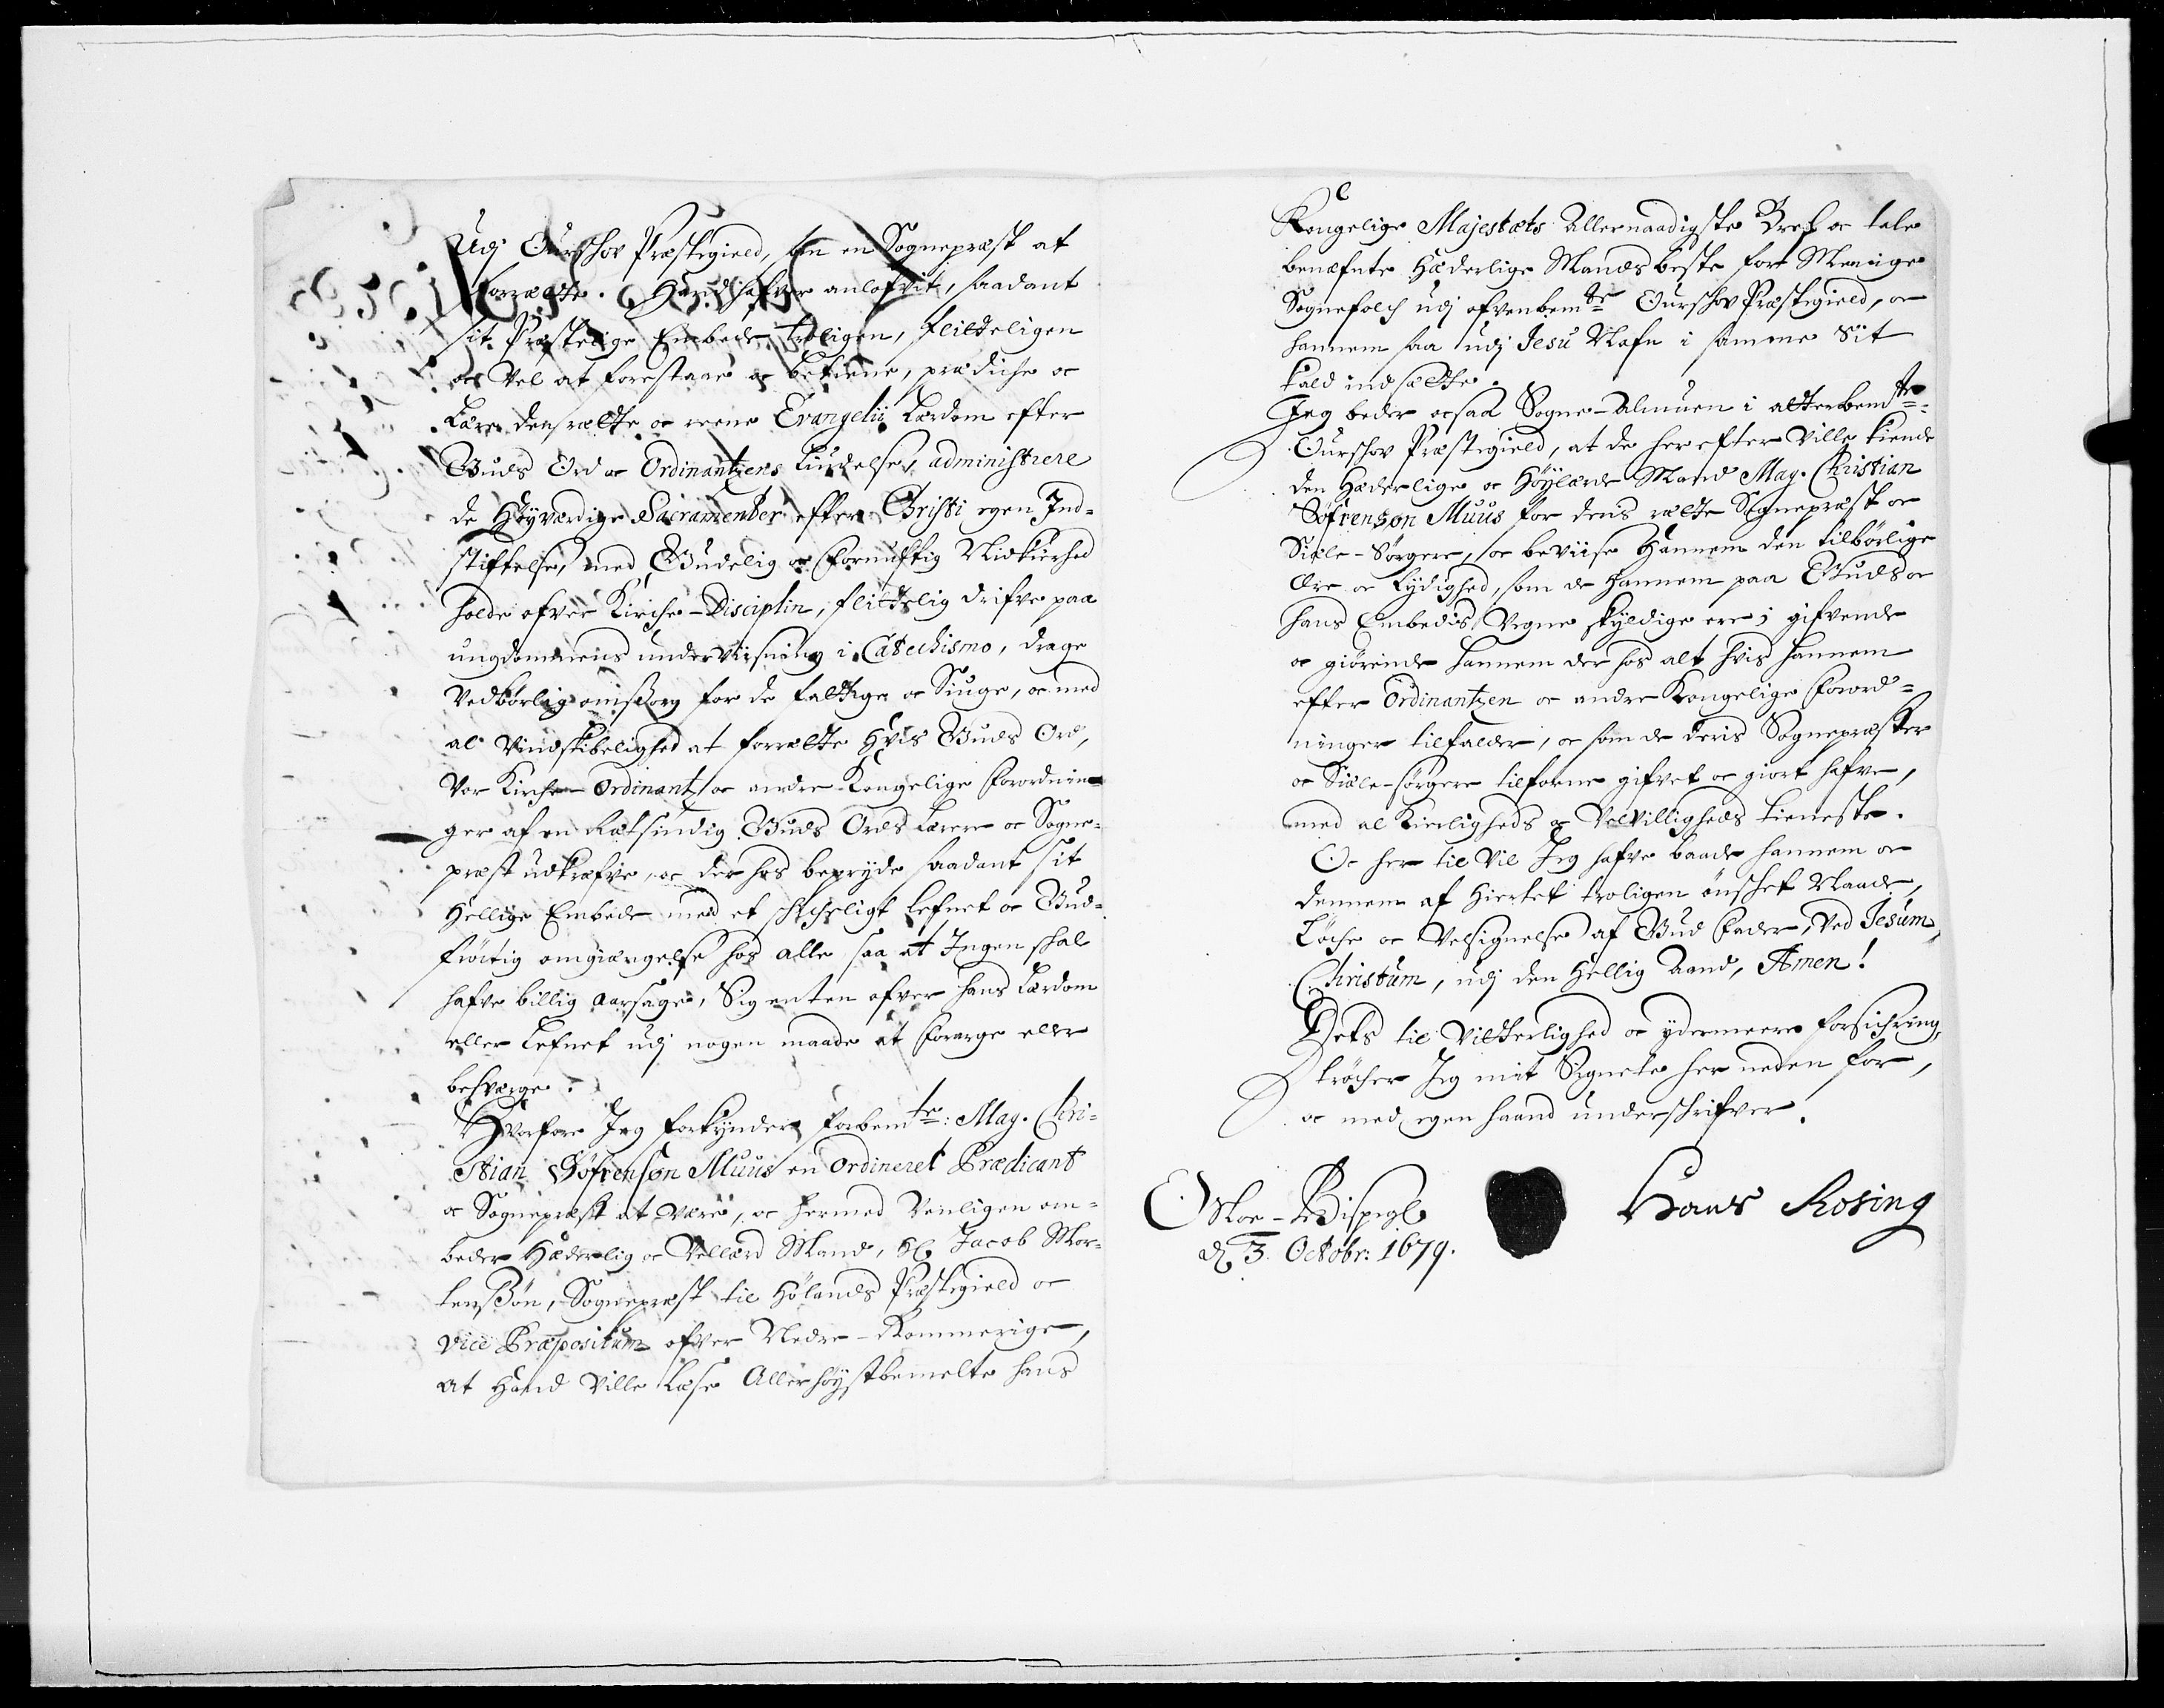 Udj Ourschov Præstegield, som en Sognepræst at
forrætte. Hand hafver anlofvit, saadant
sit Præstelige Embede troligen, flitteligen
oc vel at forestaae oc betiene, prædiche oc
Lære den rætte oc reene Evangelii Lærdom efter
Guds Ord oc Ordinantzens Liudelse, administrere
de Høyværdige Sacramenter effter Christi egen Ind-
stiftelse, med Gudelig oc Fornuftig Nidkierhed
holde ofver Kirche-Disciplin, flittelig drifve paa
ungdommens underviisning i Catechismo, drage
vedbørlig omsorg for de fattige oc Siuge, oc med
al Vindskibelighed at forrætte Hvis Guds Ord,
Vor Kirche-Ordinantz oc andre Kongelige Forordnin-
ger af en Retsindig Guds Ords Lærer oc Sogne-
præst udkræfve, oc der hos bepryde saadant sit
Hellige Embede med et schicheligt Lefnet oc Gud-
frøctig omgiængelse hos alle saa at Ingen skal
hafve billig aarsage, Sig enten ofver hans Lærdom
eller Lefnet udj nogen maade at forarge eller
besverge.
Hvorfore Jeg forkynder forbemte: Mag. Chri-
stian Søfrenson Muus en ordineret Prædicant
oc Sognepræst at være, oc hermed Venligen om-
beder Hæderlig oc Vellærd Mand, Hr Jacob Mor-
tensøn, Sognepræst til Hølands Præstegield oc
vice Præpositum ofver Nedre-Rommerige,
at Hand ville Læse Allerhøystbemelte hans
Kongelige Majestæts Allernaadigste Bref oc tale
benæfnte Hæderlige Mands beste for Menige
Sognefolch udj ofvenbemte Ourschov Præstegield, oc
hannem saa udj Jesu Nafn i samme Sit
Kald indsætte.
Jeg beder ocsaa Sogne-Almuen i atterbemte:
Ourschov Præstegield, at de her efter ville kiende
den Hæderlige oc Høylærde Mand Mag. Christian
Søfrenson Muus for dens rætte Sognepræst oc
Siæle-Sørgere, oc beviise Hannem den tilbørlige
Ære oc Lydighed, som de Hannem paa Guds oc
hans Embedis Vegne skyldige ere; gifvende
oc giørende hannem der hos alt hvis hannem
effter Ordinantzen oc andre Kongelige Forord-
ninger tilfalder, oc som de deris Sognepræster
oc Siæle-sørgere tilforne gifvet oc giort hafve,
med al Kierligheds oc Velvilligheds tieneste.
Oc her til vil Jeg hafve baade hannem oc
dennem af Hiertet troligen ønschet Naade,
Løche oc Velsignelse af Gud Fader, ved Jesum
Christum, udj den Hellig Aand, Amen!
Dets til Vitterlighed oc ydermeere forsichring,
trøcher Jeg mit Signete her neden for,
oc med egen haand underschrifver.
Hans Rosing
Osloe-Bispegl
d 3. Octobr: 1679.